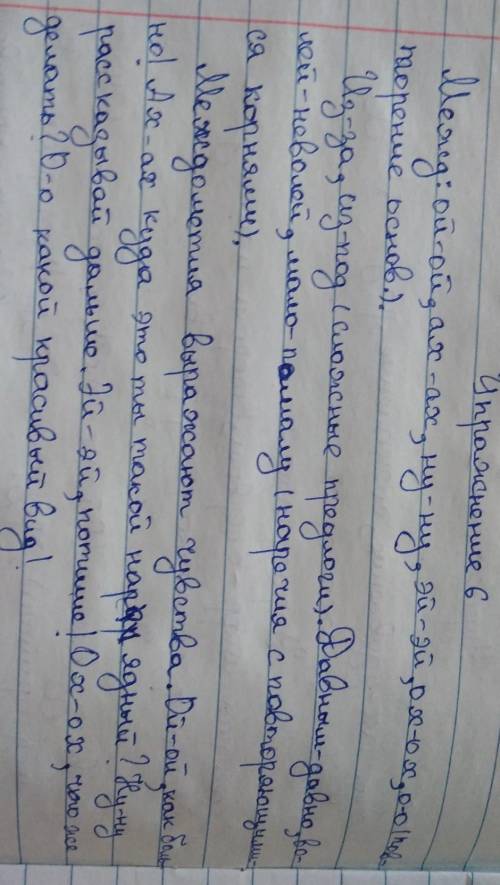 Упражнение 6
Межд: ой-ой, ах-ах, ну-ну, эй-эй, ох-ох, о-о (пов-
торение основ.).
Из-за, из-под (сложные предлоги). Давным-давно, во-
лей-неволей, мало-помалу (наречия с повторяющими-
ся корнями).
Междометия выражают чувства. Ой-ой, как боль-
но! Ах-ах куда это ты такой нарядный? Ну-ну
рассказывай дальше. Эй-эй, потише! Ох-ох, что же
делать? О-о какой красивый вид!